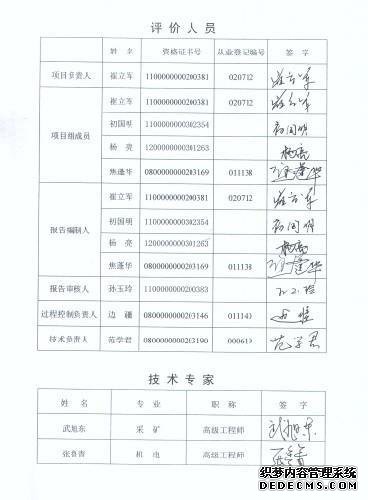 评价人员
姓名 资格证书号 从业登记编号 签字
项目负责人 崔立军 1100000000200381 020712 崔立军
项目组成员 崔立军 1100000000200381 020712 崔立军
初国明 1100000000302354 初国明
杨亮 1200000000301263 杨亮
焦蓬华 0800000000203169 011138 焦蓬华
报告编制人 崔立军 1100000000200381 020712 崔立军
初国明 1100000000302354 初国明
杨亮 1200000000301263 杨亮
焦蓬华 0800000000203169 011138 焦蓬华
报告审核人 孙玉玲 1100000000200383
过程控制负责人 边疆 0800000000203146 011141 边疆
技术负责人 范学君 0800000000203190 000612 范学君
技术专家
姓名 专业 职称 签字
武旭东 采矿 高级工程师 武旭东
张鲁青 机电 高级工程师
织梦内容管理系统
DEDECMS.COM